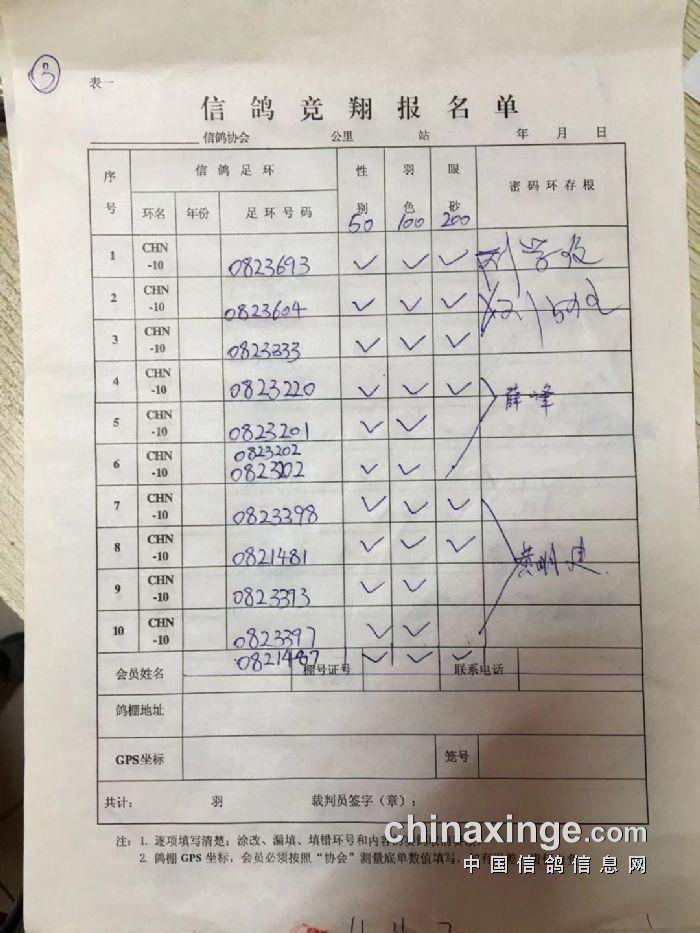 ③
表一
信鸽竞翔报名单
信鸽协会 公里 站 年 月 日
序号 信鸽足环 性别 羽色 眼砂 密码环存根
环名 年份 足环号码 50 100 200
1 CHN-10 0823693 ✓ ✓ ✓
2 CHN-10 0823604 ✓ ✓ ✓
3 CHN-10 0823333 ✓ ✓ ✓
4 CHN-10 0823220 ✓ ✓ ✓ 薛峰
5 CHN-10 0823201 ✓ ✓
0823202
6 CHN-10 0823202 ✓ ✓
7 CHN-10 0823398 ✓ ✓ ✓
8 CHN-10 0821481 ✓ ✓ ✓ 黄明建
9 CHN-10 0823393 ✓ ✓
10 CHN-10 0823397 ✓ ✓
0821487 ✓ ✓ ✓
会员姓名 棚号证号 联系电话
鸽棚地址
GPS坐标 笼号
共计： 羽 裁判员签字（章）：
注：1. 逐项填写清楚；涂改、漏填、填错环号和内容
2. 鸽棚 GPS 坐标，会员必须按照“协会”测量底单数值填写，
chinaxinge.com
中国信鸽信息网